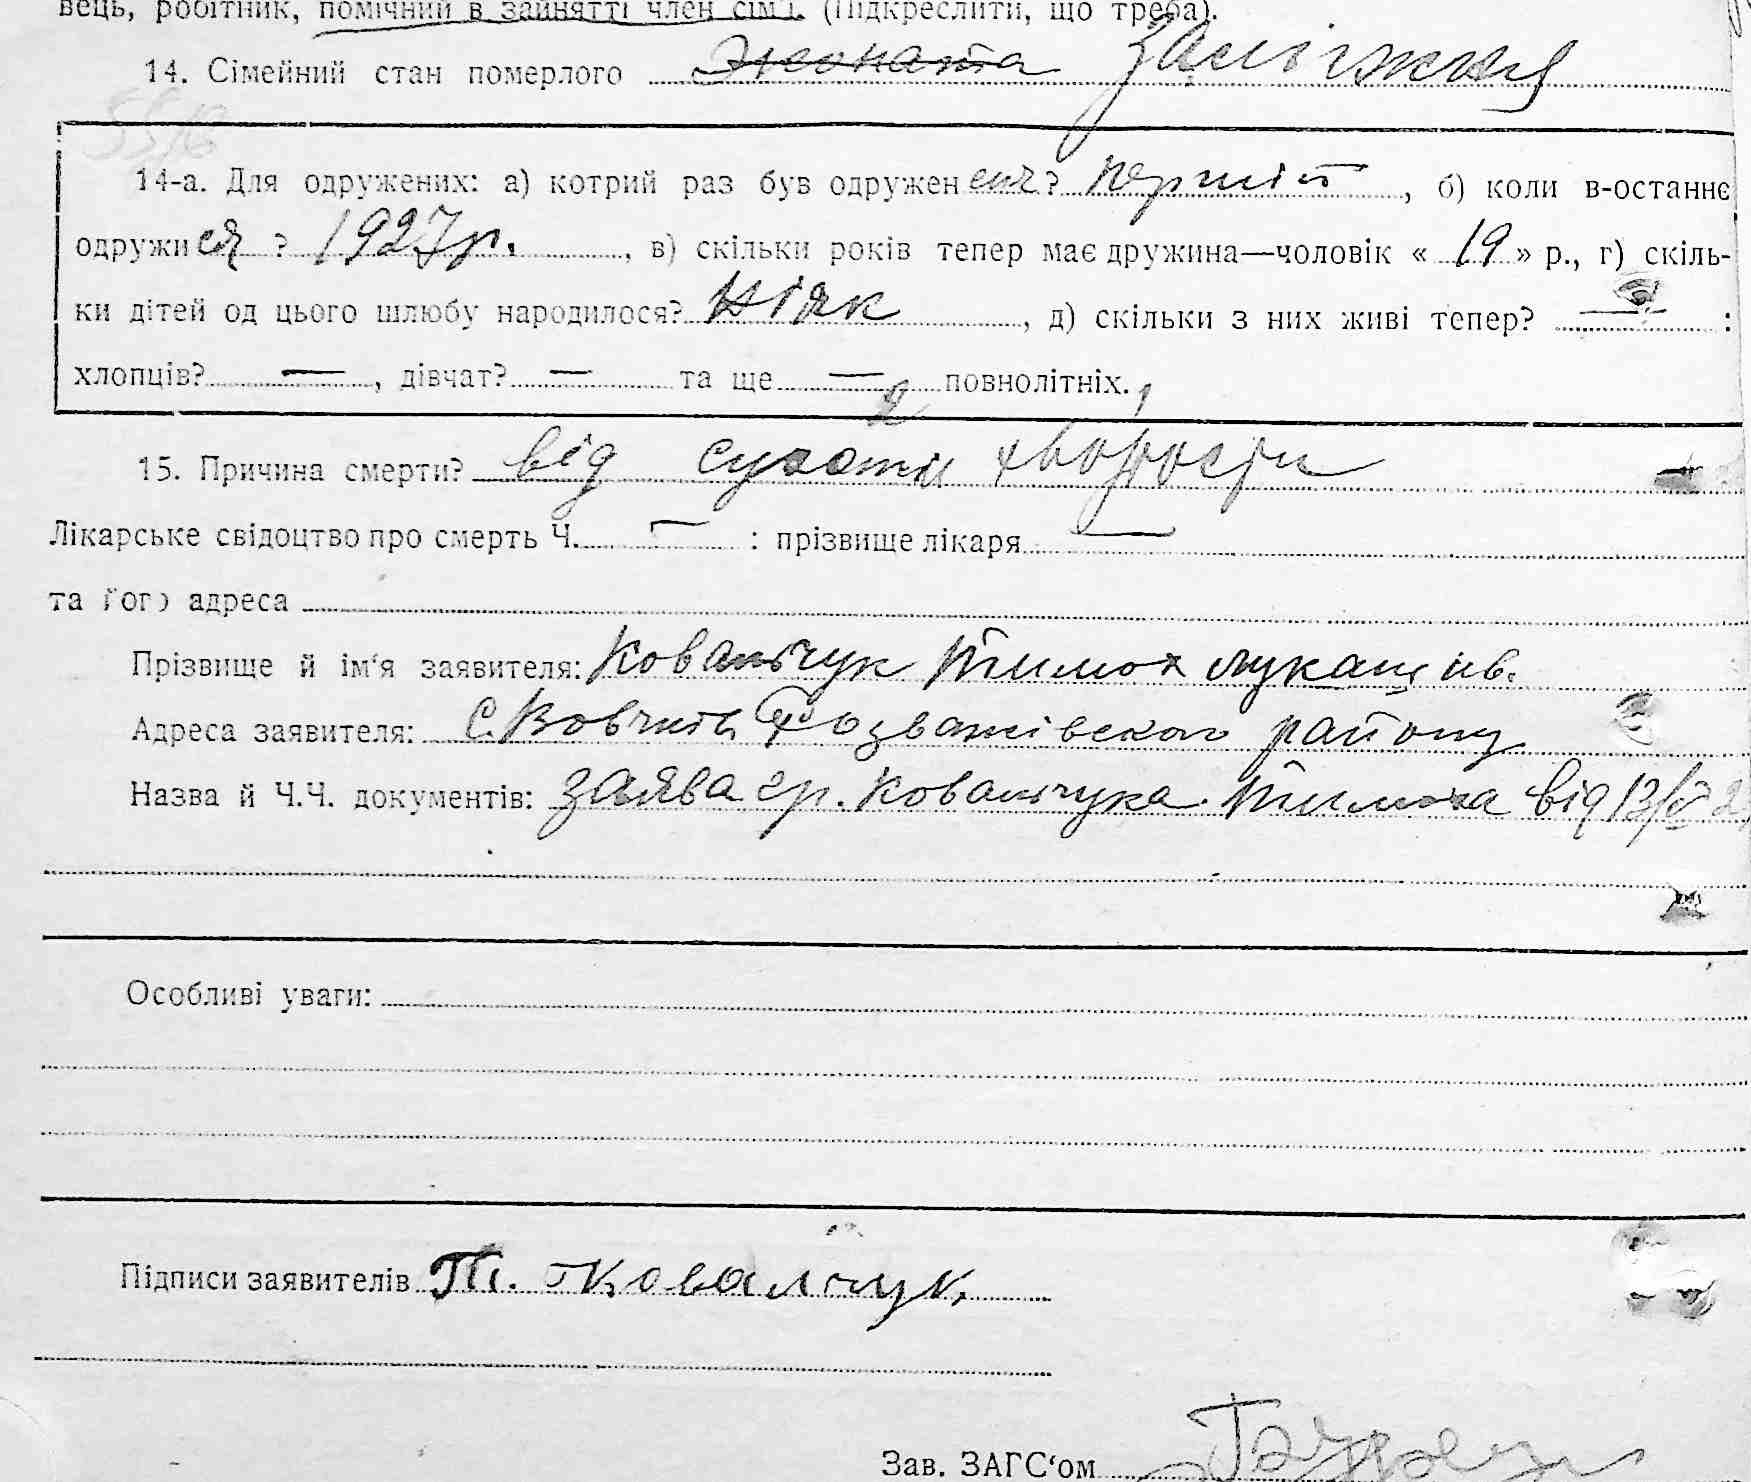 вець, робітник, помічний в зайнятті член сім'ї. (Підкреслити, що треба).
14. Сімейний стан померлого Жоната Заміжня
14-а. Для одружених: а) котрий раз був одружен ? перший, б) коли в-останнє
одружився ? 1927 р., в) скільки років тепер має дружина—чоловік « 19 » р., г) скіль-
ки дітей од цього шлюбу народилося? , д) скільки з них живі тепер? — :
хлопців? — , дівчат? — та ще — повнолітніх.
15. Причина смерти? від сухот
Лікарське свідоцтво про смерть Ч. — : прізвище лікаря —
та його адреса
Прізвище й ім'я заявителя: Ковальчук Тимох Лукашів.
Адреса заявителя: С. Вовчків Розважівськог району
Назва й Ч.Ч. документів: заява гр. Ковальчука Тимоха від 13/
Особливі уваги:
Підписи заявителів Т. Ковалчук,
Зав. ЗАГС'ом